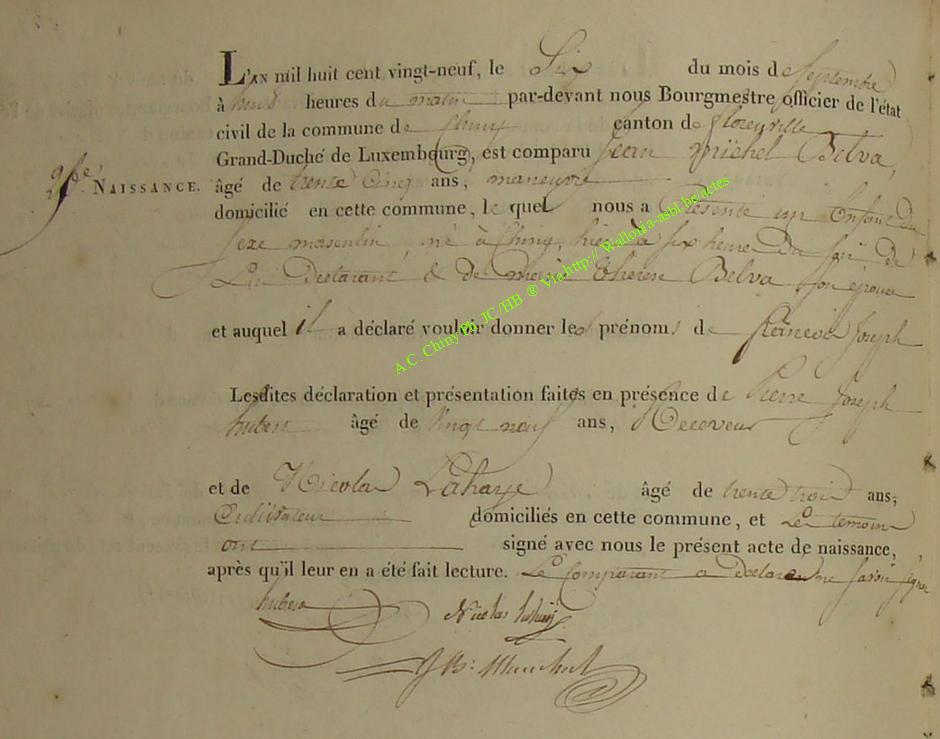 L'AN mil huit cent vingt-neuf, le Six du mois de Septembre
à heures du matin par-devant nous Bourgmestre officier de l'état
civil de la commune de Chiny canton de florenville
Grand-Duché de Luxembourg, est comparu Jean Michel Belva
NAISSANCE. âgé de trente Cinq ans, maneuvre
domicilié en cette commune, le quel nous a présenté un Enfant du
Sexe masculin né à Chiny, hier à six heure du soir de
Lui Declarant & de Marie Therese Belva son épouse
et auquel il a déclaré vouloir donner les prénoms de Joseph
Lesdites déclaration et présentation faites en présence de Pierre Joseph
hubert âgé de Vingt neuf ans, Receveur
et de Nicolas Lahaye âgé de trente trois ans,
Cultivateur domiciliés en cette commune, et Les temoins
ont signé avec nous le présent acte de naissance,
après qu'il leur en a été fait lecture. Le Comparant a declaré ne savoir signer
hubert Nicolas lahay
A.C. Chiny Ph. JC/HB ® Via http://Wallonia-asbl.be/actes